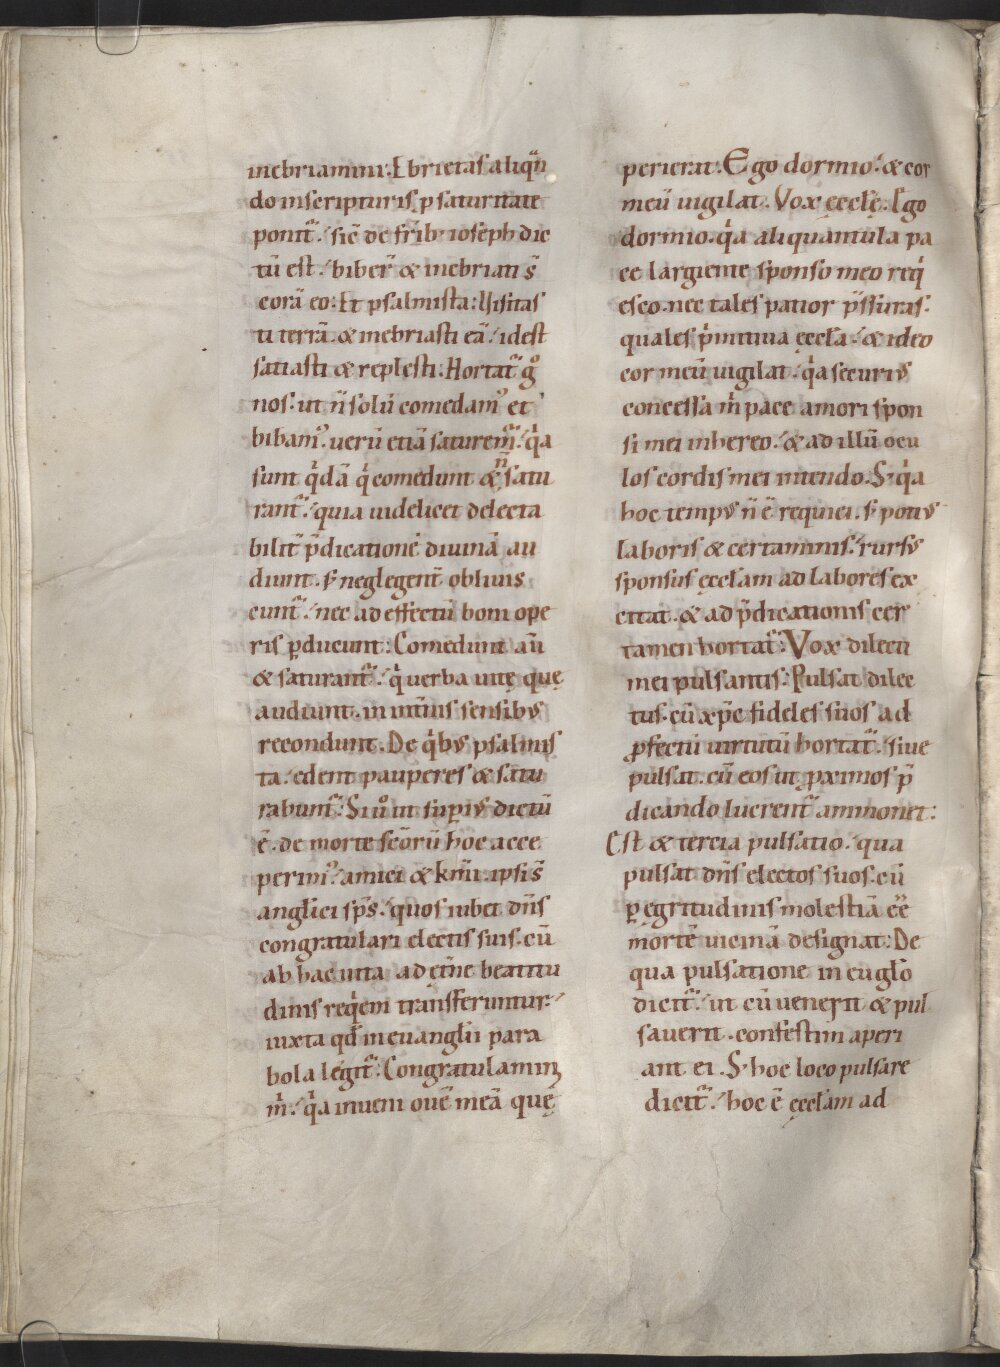 inebriamini. Ebrietas aliqñ
do inscripturis p̱ saturitate
ponit᷑. sic̄ de fr̄ib; ioseph dic
tū est. biber̄ & inebriati s̄
corā eo. Et psalmista: Uisitas
ti terrā. & inebriasti eā. idest
satiasti & replesti. Hortat᷑ gͦ
nos. ut n̄ solū comedamꝰ et
bibamꝰ. uerū etiā saturem᷑. qͥa
sunt qͥdā qͥ comedunt & n̄ satu
rant᷑. quia uidelicet delecta
bilit̄ p̄dicationē diuinā au
diunt. s; neglegent̄ obliuis
cunt᷑. nec ad effectū boni ope
ris p̱ducunt: Comedunt aū
& saturant᷑. qͥ uerba uitę quę
audiunt. in intim̄s sensibꝰ
recondunt. De qͥbꝰ psalmis
ta. edent pauperes & satu
rabunt᷑. Siuͦ ut sup̱iꝰ dictū
ē. de morte sc̄orū hōc acce
perimꝰ. amici & kmī. ipsi s̄
anglici sp̄s. quos iubet dn̄s
congratulari electis suis. cū
ab hac uita ad ęt̄ne beatitu
dinis reqͥem transferuntur.
iuxta qđ in euanglīi para
bola legit᷑: Congratulamini
m̄. qͥa inueni ouē meā quę
perierat. Ego dormio. & cor
meū uigilat. Vox ęcclę̄. Ego
dormio. qͥa aliquantula pa
ce largiente sponso meo reqͥ
esco. nec tales patior p̄ssuras.
quales pͥmitiua ęcclā. & ideo
cor meū uigilat. qͥa securiꝰ
concessa m̄ pace amori spon
si mei inhereo. & ad illū ocu
los cordis mei intendo. S; qͥa
hoc tempꝰ n̄ ē requiei. s; potiꝰ
laboris & certaminis. rursꝰ
sponsus ęcclam ad labores ex
citat. & ad p̄dicationis cer
tamen hortat᷑: Vox dilecti
mei pulsantis: Pulsat dilec
tus. cū xp̄c fideles suos ad
ꝓfectū uirtutū hortat᷑. siue
pulsat. cū eos ut ꝓximos p̄
dicando lucrent᷑ ammonet:
Est & tercia pulsatio. qua
pulsat dn̄s electos suos. cū
p̱ ęgritudinis molestiā eē
mortē uicinā designat: De
qua pulsatione in eugl̄o
dicit᷑. ut cū uener̄it & pul
sauer̄it. confestim aperi
ant ei. S; hoc loco pulsare
dicit᷑. hoc ē ęcclam ad